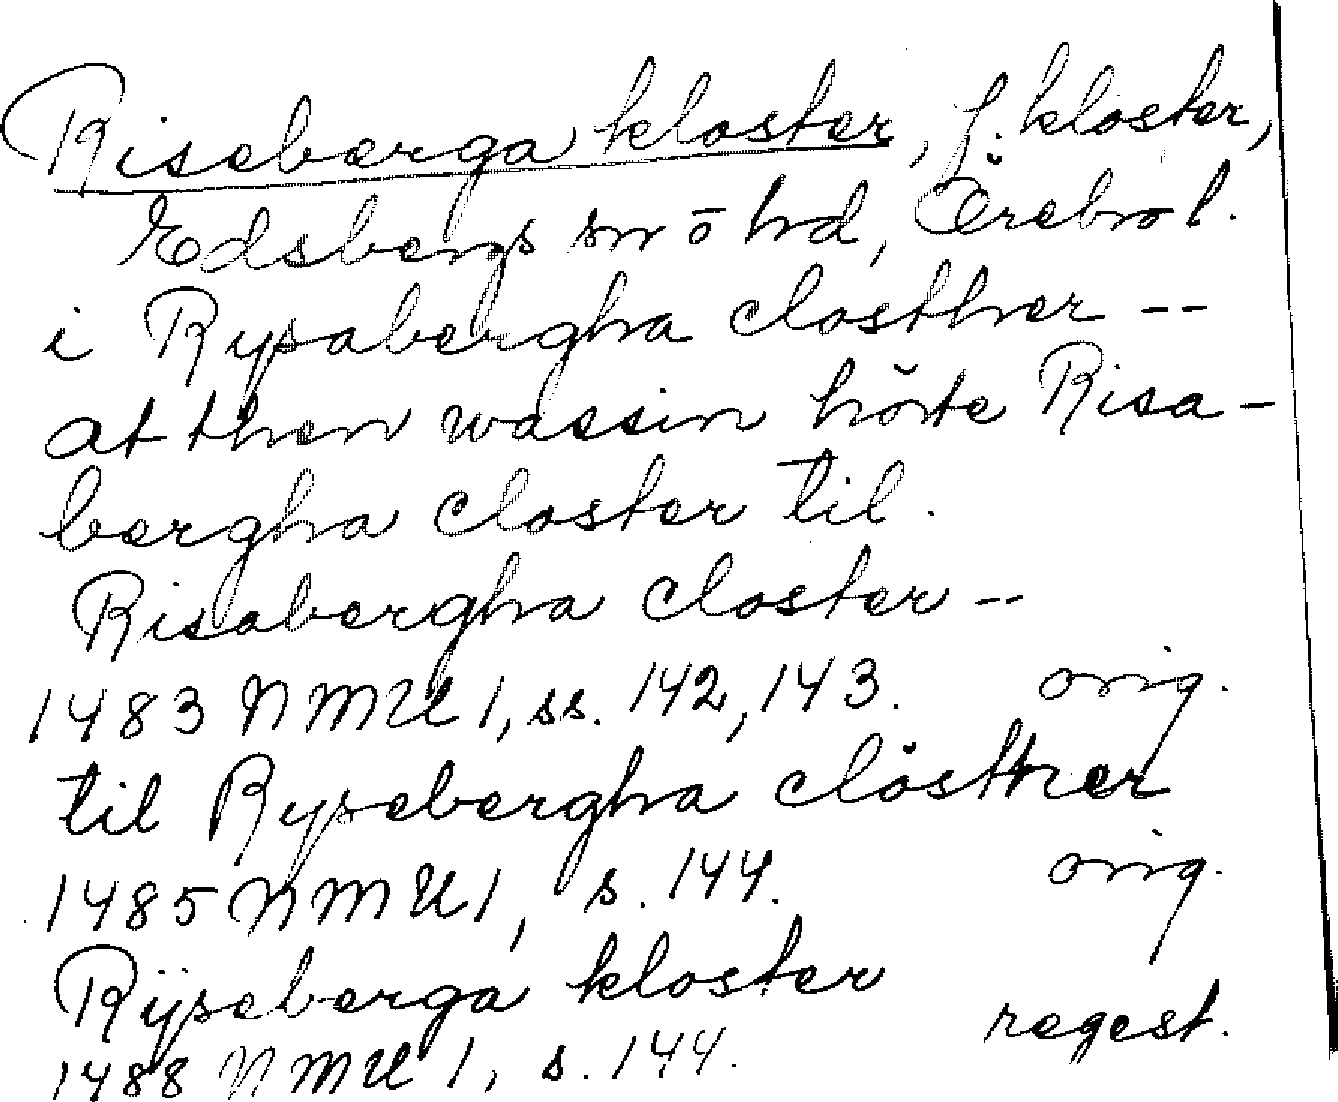 Riseberga kloster, f. kloster,
Edsbergs sn o hd, Örebro l.
i Rysabergha closther --
at then wassin hörte Risa-
bergha closter til.
Risabergha closter --
1483 NMU 1, ss. 142, 143. orig.
til Rysebergha clösther
1485 NMU 1, s. 144. orig.
Rÿseberga kloster
1488 NMU 1, s. 144. regest.